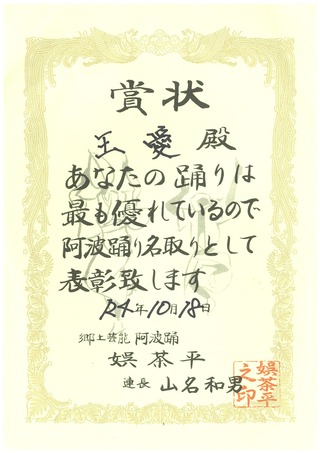 賞状
王愛殿
あなたの踊りは
最も優れているので
阿波踊り名取りとして
表彰致します
R4年10月18日
郷土芸能 阿波踊
娯茶平
連長 山名和男
娯茶平
之印